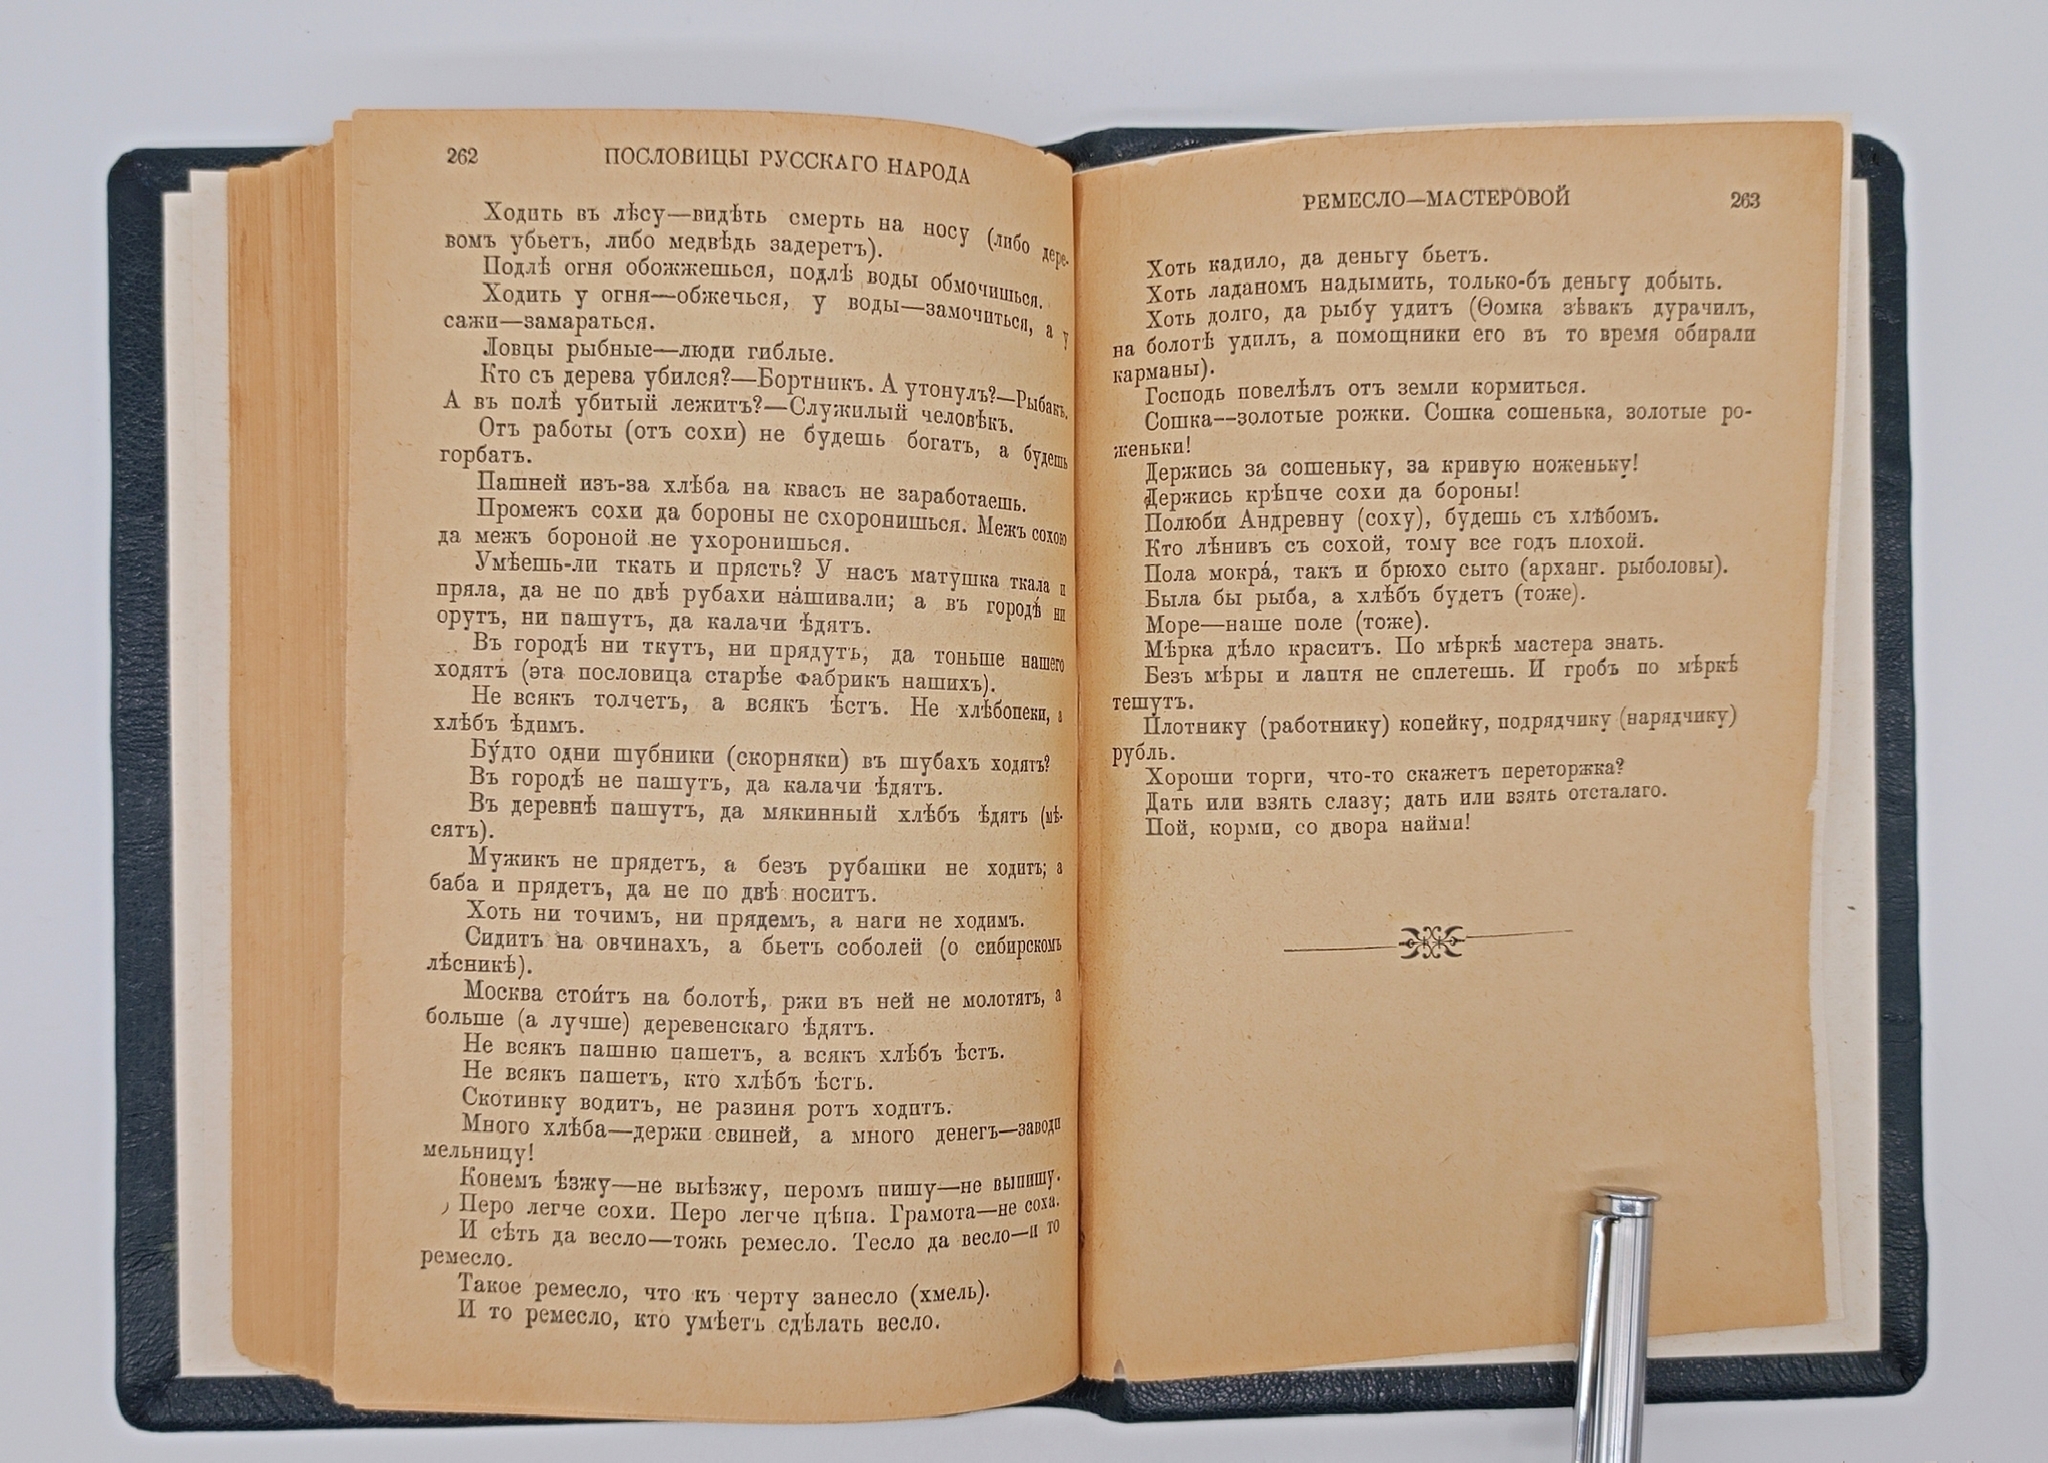 262
ПОСЛОВИЦЫ РУССКАГО НАРОДА
Ходить въ лѣсу—видѣть смерть на носу (либо дере-
вомъ убьетъ, либо медвѣдь задеретъ).
Подлѣ огня обожжешься, подлѣ воды обмочишься.
Ходить у огня—обжечься, у воды—замочиться, а у
сажи—замараться.
Ловцы рыбные—люди гиблые.
Кто съ дерева убился?—Бортникъ. А утонулъ?—Рыбакъ.
А въ полѣ убитый лежитъ?—Служилый человѣкъ.
Отъ работы (отъ сохи) не будешь богатъ, а будешь
горбатъ.
Пашней изъ-за хлѣба на квасъ не заработаешь.
Промежъ сохи да бороны не схоронишься. Межъ сохою
да межъ бороной не ухоронишься.
Умѣешь-ли ткать и прясть? У насъ матушка ткала и
пряла, да не по двѣ рубахи на́шивали; а въ городѣ ни
орутъ, ни пашутъ, да калачи ѣдятъ.
Въ городѣ ни ткутъ, ни прядутъ, да тоньше нашего
ходятъ (эта пословица старѣе фабрикъ нашихъ).
Не всякъ толчетъ, а всякъ ѣстъ. Не хлѣбопеки, а
хлѣбъ ѣдимъ.
Бу́дто одни шубники (скорняки) въ шубахъ ходятъ?
Въ городѣ не пашутъ, да калачи ѣдятъ.
Въ деревнѣ пашутъ, да мякинный хлѣбъ ѣдятъ (мѣ-
сятъ).
Мужикъ не прядетъ, а безъ рубашки не ходитъ; а
баба и прядетъ, да не по двѣ носитъ.
Хоть ни точимъ, ни прядемъ, а наги не ходимъ.
Сидитъ на овчинахъ, а бьетъ соболей (о сибирскомъ
лѣсникѣ).
Москва стои́тъ на болотѣ, ржи въ ней не молотятъ, а
больше (а лучше) деревенскаго ѣдятъ.
Не всякъ пашню пашетъ, а всякъ хлѣбъ ѣстъ.
Не всякъ пашетъ, кто хлѣбъ ѣстъ.
Скотинку водить, не разиня ротъ ходить.
Много хлѣба—держи свиней, а много денегъ—заводи
мельницу!
Конемъ ѣзжу—не выѣзжу, перомъ пишу—не выпишу.
Перо легче сохи. Перо легче цѣпа. Грамота—не соха.
И сѣть да весло—тожь ремесло. Тесло да весло—и то
ремесло.
Такое ремесло, что къ черту занесло (хмель).
И то ремесло, кто умѣетъ сдѣлать весло.
РЕМЕСЛО—МАСТЕРОВОЙ
263
Хоть кадило, да деньгу бьетъ.
Хоть ладаномъ надымить, только-бъ деньгу добыть.
Хоть долго, да рыбу удитъ (Ѳомка зѣвакъ дурачилъ,
на болотѣ удилъ, а помощники его въ то время обирали
карманы).
Господь повелѣлъ отъ земли кормиться.
Сошка—золотые рожки. Сошка сошенька, золотые ро-
женьки!
Держись за сошеньку, за кривую ноженьку!
Держись крѣпче сохи да бороны!
Полюби Андревну (соху), будешь съ хлѣбомъ.
Кто лѣнивъ съ сохой, тому все годъ плохой.
Пола мокра́, такъ и брюхо сыто (арханг. рыболовы).
Была бы рыба, а хлѣбъ будетъ (тоже).
Море—наше поле (тоже).
Мѣрка дѣло краситъ. По мѣркѣ мастера знать.
Безъ мѣры и лаптя не сплетешь. И гробъ по мѣркѣ
тешутъ.
Плотнику (работнику) копейку, подрядчику (нарядчику)
рубль.
Хороши торги, что-то скажетъ переторжка?
Дать или взять слазу; дать или взять отсталаго.
Пой, корми, со двора найми!